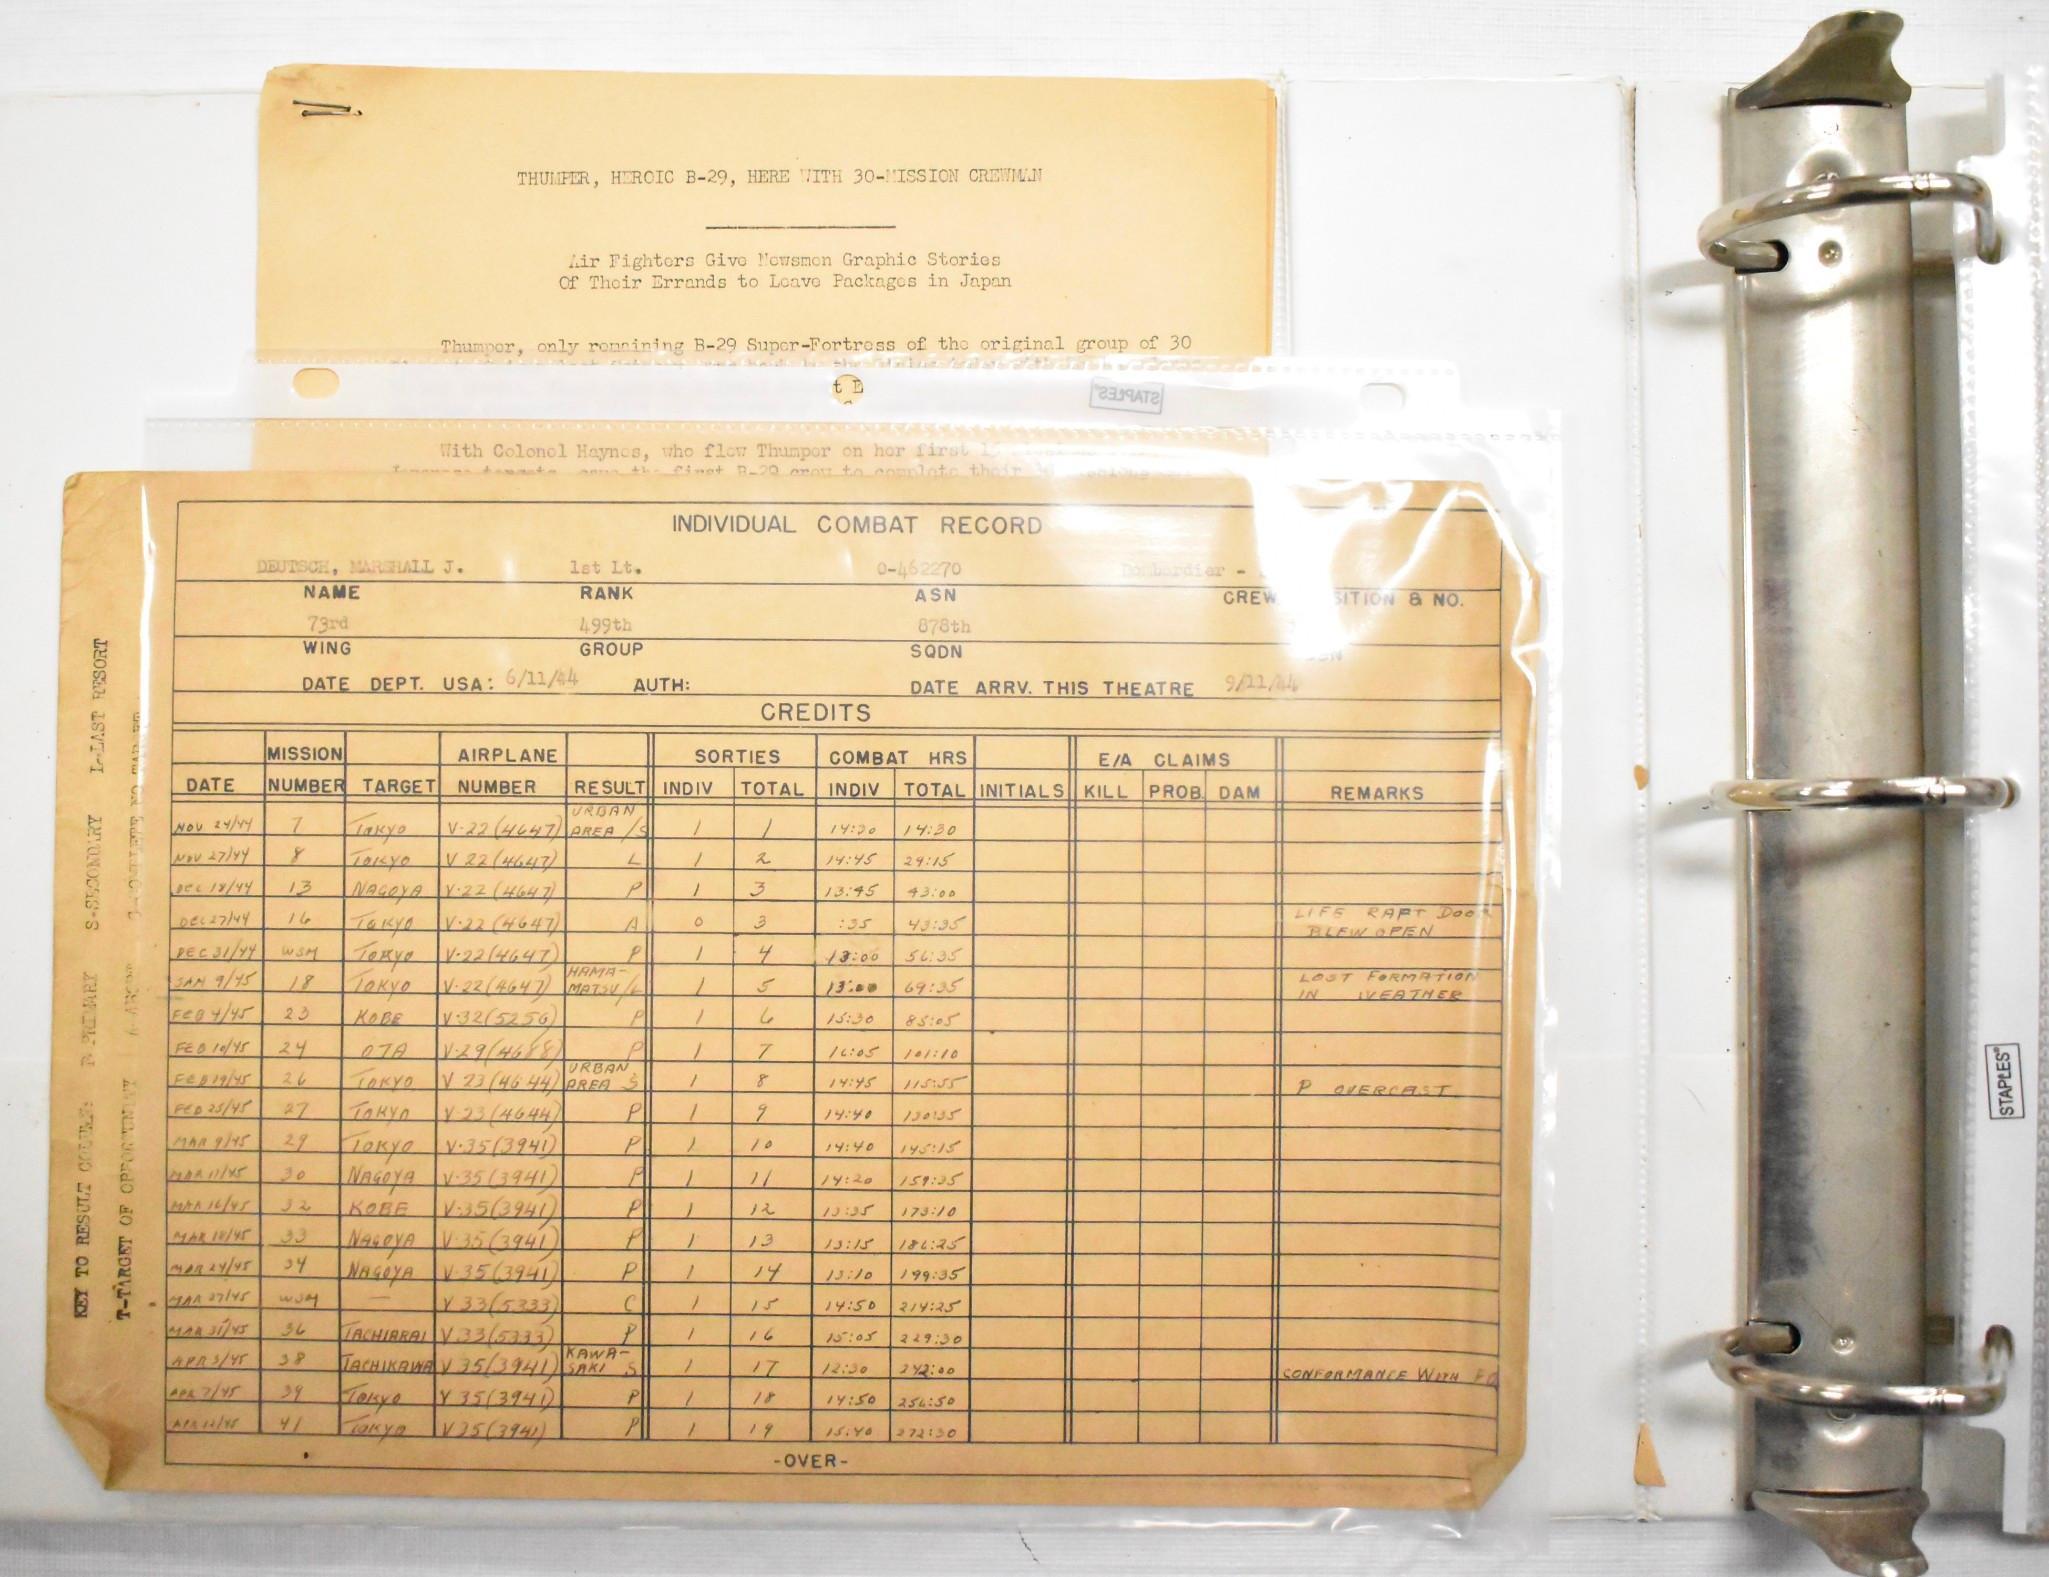 THUMPER, HEROIC B-29, HERE WITH 30-MISSION CREWMAN
Air Fighters Give Newsmen Graphic Stories
Of Their Errands to Leave Packages in Japan
Thumper, only remaining B-29 Super-Fortress of the original group of 30
STAPLES
With Colonel Haynes, who flew Thumper on her first 15
Japanese targets, came the first B-29 crew to complete their
INDIVIDUAL COMBAT RECORD
DEUTSCH, MARSHALL J. 1st Lt. 0-462270 Bombardier -
NAME RANK ASN CREW & NO.
73rd 499th 878th
WING GROUP SQDN
DATE DEPT. USA: 6/11/44 AUTH: DATE ARRV. THIS THEATRE 9/11/44
CREDITS
MISSION AIRPLANE SORTIES COMBAT HRS E/A CLAIMS
DATE NUMBER TARGET NUMBER RESULT INDIV TOTAL INDIV TOTAL INITIALS KILL PROB. DAM REMARKS
NOV 24/44 7 TOKYO V-22(4647) URBAN AREA/S 1 1 14:30 14:30
NOV 27/44 8 TOKYO V 22(4647) L 1 2 14:45 29:15
DEC 18/44 13 NAGOYA V-22(4647) P 1 3 13:45 43:00
DEC 27/44 16 TOKYO V-22(4647) A 0 3 :35 43:35 LIFE RAFT DOOR BLEW OPEN
DEC 31/44 WSM TOKYO V-22(4647) P 1 4 13:00 56:35
JAN 9/45 18 TOKYO V-22(4647) HAMA-MATSU/L 1 5 13:00 69:35 LOST FORMATION IN WEATHER
FEB 4/45 23 KOBE V-32(5256) P 1 6 15:30 85:05
FEB 10/45 24 OTA V-29(4688) P 1 7 16:05 101:10
FEB 19/45 26 TOKYO V 23(4644) URBAN AREA S 1 8 14:45 115:55 P OVERCAST
FEB 25/45 27 TOKYO V-23(4644) P 1 9 14:40 130:35
MAR 9/45 29 TOKYO V-35(3941) P 1 10 14:40 145:15
MAR 11/45 30 NAGOYA V-35(3941) P 1 11 14:20 159:35
MAR 16/45 32 KOBE V-35(3941) P 1 12 13:35 173:10
MAR 18/45 33 NAGOYA V-35(3941) P 1 13 13:15 186:25
MAR 24/45 34 NAGOYA V-35(3941) P 1 14 13:10 199:35
MAR 27/45 WSM — V 33(5333) C 1 15 14:50 214:25
MAR 31/45 36 TACHIARAI V-33(5333) P 1 16 15:05 229:30
APR 3/45 38 TACHIKAWA V 35(3941) KAWA-SAKI S 1 17 12:30 242:00 CONFORMANCE WITH FO
APR 7/45 39 TOKYO V 35(3941) P 1 18 14:50 256:50
APR 12/45 41 TOKYO V35(3941) P 1 19 15:40 272:30
-OVER-
KEY TO RESULT COLUMN: P PRIMARY S-SECONDARY L-LAST RESORT
T-TARGET OF OPPORTUNITY
STAPLES